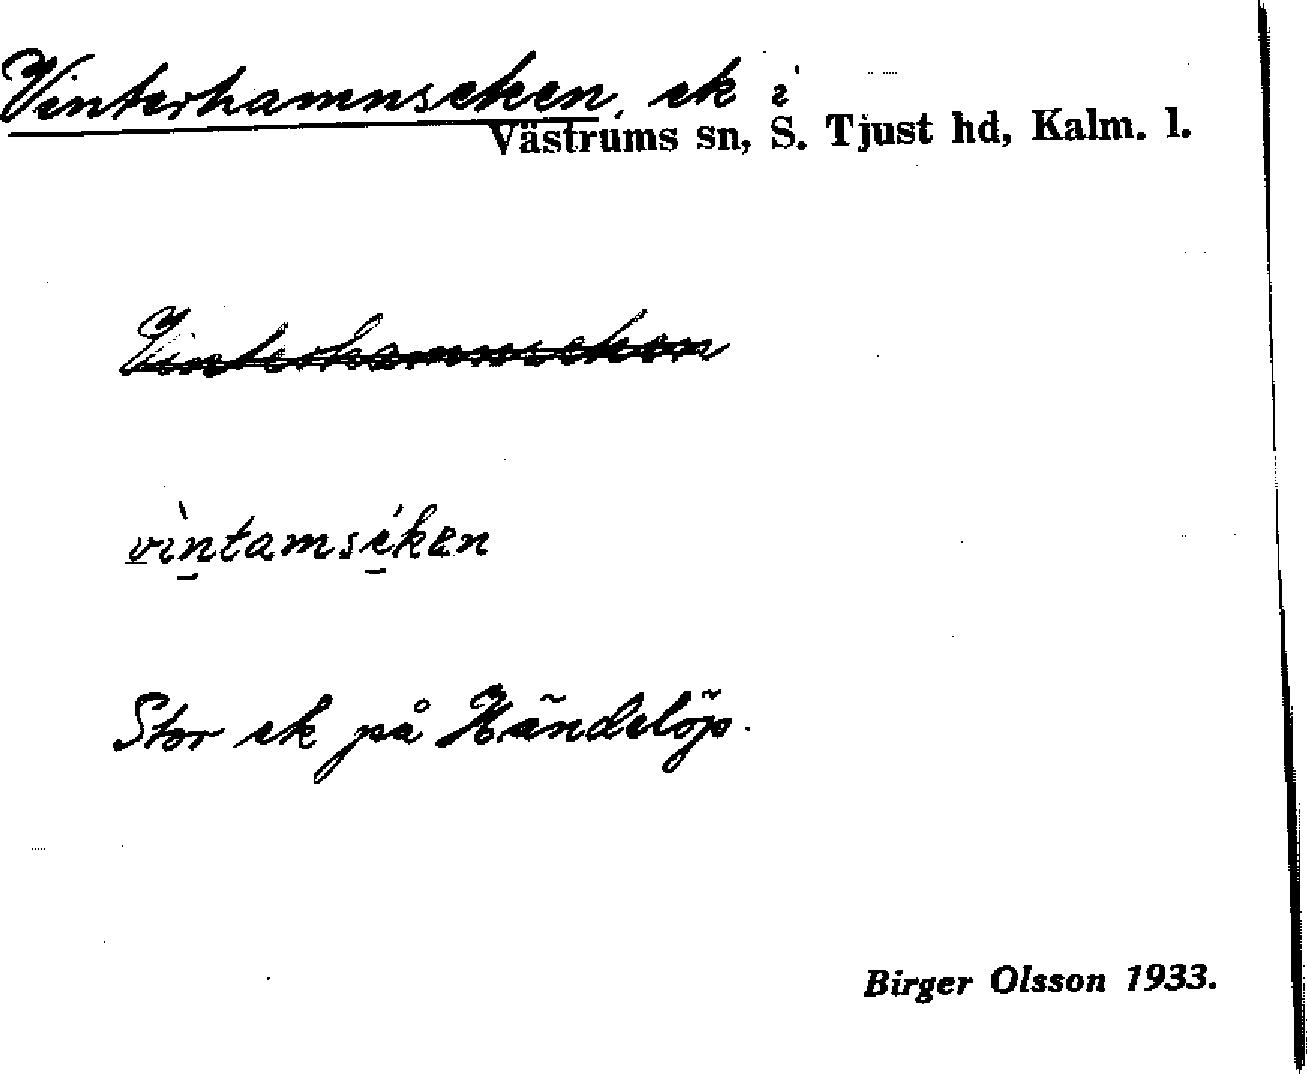 Vinterhamnseken, ek i
Västrums sn, S. Tjust hd, Kalm. l.
Vinterhamnseken
vìntamséken
Stor ek på Händelöp.
Birger Olsson 1933.